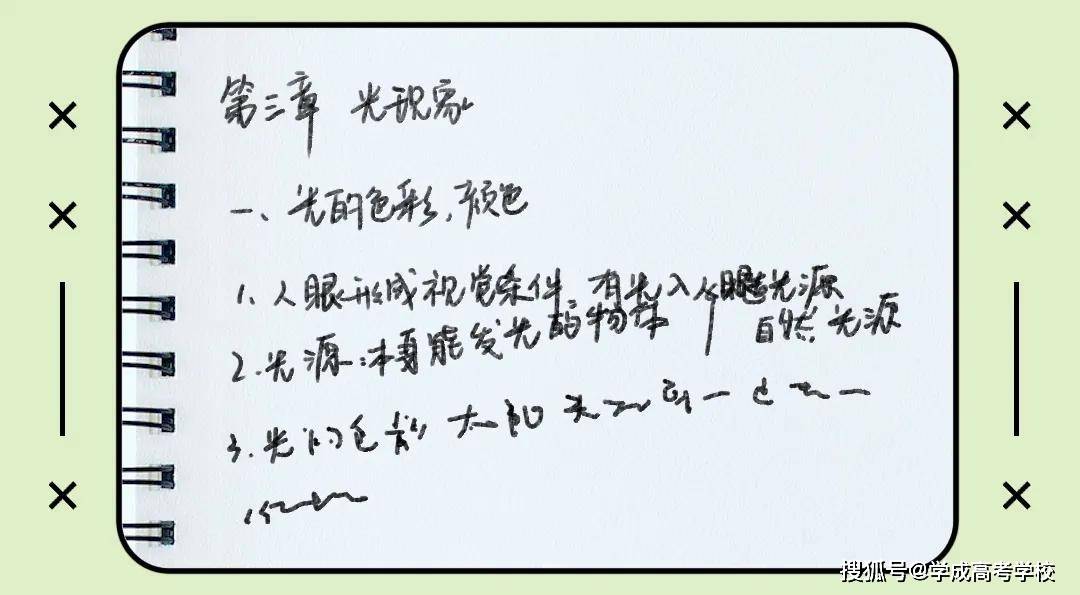 第三章 光现象
一、光的色彩、颜色
1、人眼形成视觉条件 有光入人眼
光源
2.光源:本身能发光的物体 自然光源
3.光的色散 太阳光
搜狐号@学成高考学校